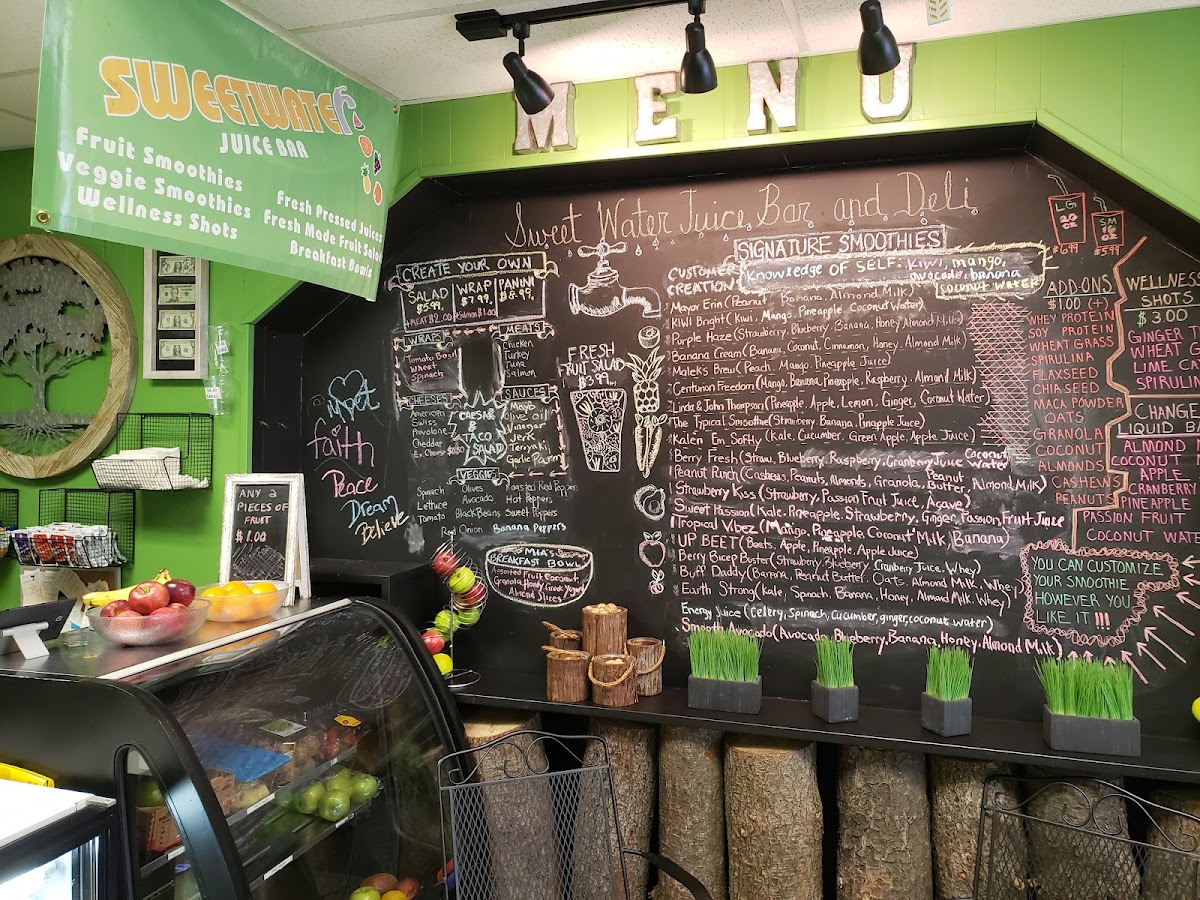 SWEETWATER
JUICE BAR
Fruit Smoothies
Veggie Smoothies
Wellness Shots
Fresh Pressed Juices
Fresh Made Fruit Salad
Breakfast Bowls
MENU
Sweet Water Juice Bar and Deli
CREATE YOUR OWN
SALAD
$5.99
+MEAT $2.00
WRAP
$7.99
+Salmon $1.00
PANINI
$8.99
WRAPS
Tomato Basil
Wheat
Spinach
MEATS
Chicken
Turkey
Tuna
Salmon
CHEESES
American
Swiss
Provolone
Cheddar
Ex. Cheese
CAESAR
&
TACO
SALAD
SAUCES
Mayo
Olive oil
Vinegar
Jerk
Teriyaki
Garlic Parm
VEGGIES
Spinach Olives Roasted Red Peppers
Lettuce Avocado Hot Peppers
Tomato Black Beans Sweet Peppers
Red Onion Banana Peppers
MHA's
BREAKFAST BOWL
Assorted Fruit, Coconut,
Granola, Honey, Greek Yogurt
Almond Slices
FRESH
FRUIT SALAD
$3.99
love
faith
Peace
Dream
Believe
ANY 2
PIECES OF
FRUIT
$1.00
SIGNATURE SMOOTHIES
CUSTOMER
CREATION:
Knowledge OF SELF: Kiwi, mango,
avocado, banana
coconut water
Mayor Erin (Peanut, Banana, Almond Milk)
KIWI Bright (Kiwi, Mango, Pineapple, Coconut Water)
Purple Haze (Strawberry, Blueberry, Banana, Honey, Almond Milk)
Banana Cream (Banana, Coconut, Cinnamon, Honey, Almond Milk)
Malek's Breu (Peach, Mango, Pineapple Juice)
Centurion Freedom (Mango, Banana, Pineapple, Raspberry, Almond Milk)
Linda & John Thompson (Pineapple, Apple, Lemon, Ginger, Coconut Water)
The Typical Smoothie (Strawberry, Banana, Pineapple Juice)
Kale'n Em Softly (Kale, Cucumber, Green Apple, Apple Juice)
Berry Fresh (Straw, Blueberry, Raspberry, Cranberry Juice, Coconut Water)
Peanut Punch (Cashews, Peanuts, Almonds, Granola, Peanut Butter, Almond Milk)
Strawberry Kiss (Strawberry, Passion Fruit Juice, Agave)
Sweet Passion (Kale, Pineapple, Strawberry, Ginger, Passion Fruit Juice
Tropical Vibez (Mango, Pineapple, Coconut Milk, Banana)
UP BEET (Beets, Apple, Pineapple, Apple Juice)
Berry Bicep Buster (Strawberry, Blueberry, Cranberry Juice, Whey)
Buff Daddy (Banana, Peanut Butter, Oats, Almond Milk, Whey)
Earth Strong (Kale, Spinach, Banana, Honey, Almond Milk, Whey)
Energy Juice (Celery, Spinach, cucumber, ginger, coconut water)
Smooth Avocado (Avocado, Blueberry, Banana, Honey, Almond Milk)
LG
20
oz
$6.99
SM
16
oz
$5.99
ADD-ONS
$1.00 (+)
WHEY PROTEIN
SOY PROTEIN
WHEAT GRASS
SPIRULINA
FLAXSEED
CHIA SEED
MACA POWDER
OATS
GRANOLA
COCONUT
ALMONDS
CASHEWS
PEANUTS
WELLNESS
SHOTS
$3.00
GINGER
WHEAT
LIME
SPIRULIN
CHANGE
LIQUID
ALMOND
COCONUT
APPLE
CRANBERRY
PINEAPPLE
PASSION FRUIT
COCONUT WATE
YOU CAN CUSTOMIZE
YOUR SMOOTHIE
HOWEVER YOU
LIKE IT!!!